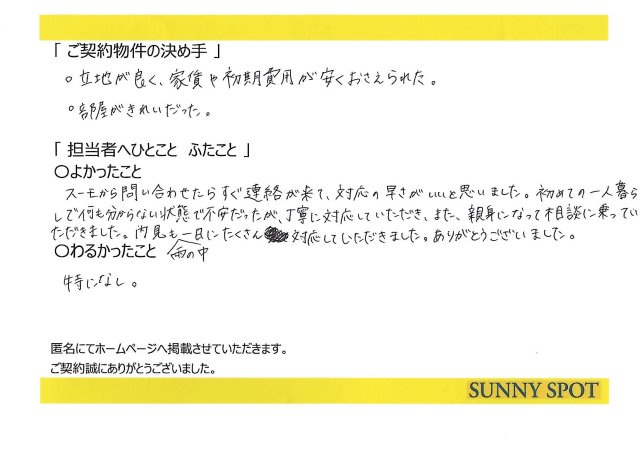 「 ご契約物件の決め手 」
○ 立地が良く、家賃や初期費用が安くおさえられた。
○ 部屋がきれいだった。
「 担当者へひとこと ふたこと 」
○よかったこと
スーモから問い合わせたらすぐ連絡が来て、対応の早さがいいと思いました。初めての一人暮ら
しで何も分からない状態で不安だったが、丁寧に対応していただき、また、親身になって相談に乗ってい
ただきました。内見も一日にたくさん対応していただきました。ありがとうございました。
○わるかったこと
雨の中
特になし。
匿名にてホームページへ掲載させていただきます。
ご契約誠にありがとうございました。
SUNNY SPOT